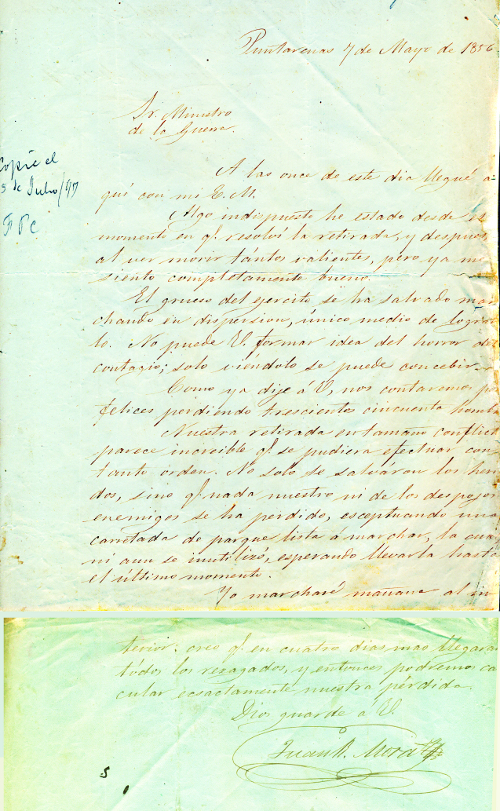 Puntarenas 7 de Mayo de 1856
Sr. Ministro
de la Guerra.
Copié el
5 de Julio/97
A las once de este dia llegué a-
quí con mi E. M.
Algo indispuesto he estado desde el
momento en q. resolví la retirada, y despues
al ver morir tantos valientes, pero ya me
siento completamente bueno.
El grueso del ejército se ha salvado mar
chando en dispersion, único medio de lograr
lo. No puede V. formar idea del horror del
contagio; solo viéndolo se puede concebir.
Como ya dije á V, nos contaremos
felices perdiendo trescientos cincuenta homb
Nuestra retirada en tamaño conflict
parece increible q. se pudiera efectuar con
tanto órden. No solo se salváron los heri
dos, sino q. nada nuestro ni de los despojos
enemigos se ha perdido, esceptuando una
carretada de parque lista á marchar, la cua
ni aun se inutilizó, esperando llevarla hasta
el último momento.
Yo marcharé mañana al in
terior: creo q. en cuatro dias mas llegaran
todos los rezagados, y entonces podremos ca
cular ecsactamente nuestra pérdida.
Dios guarde á V.
Juan R. Mora
5